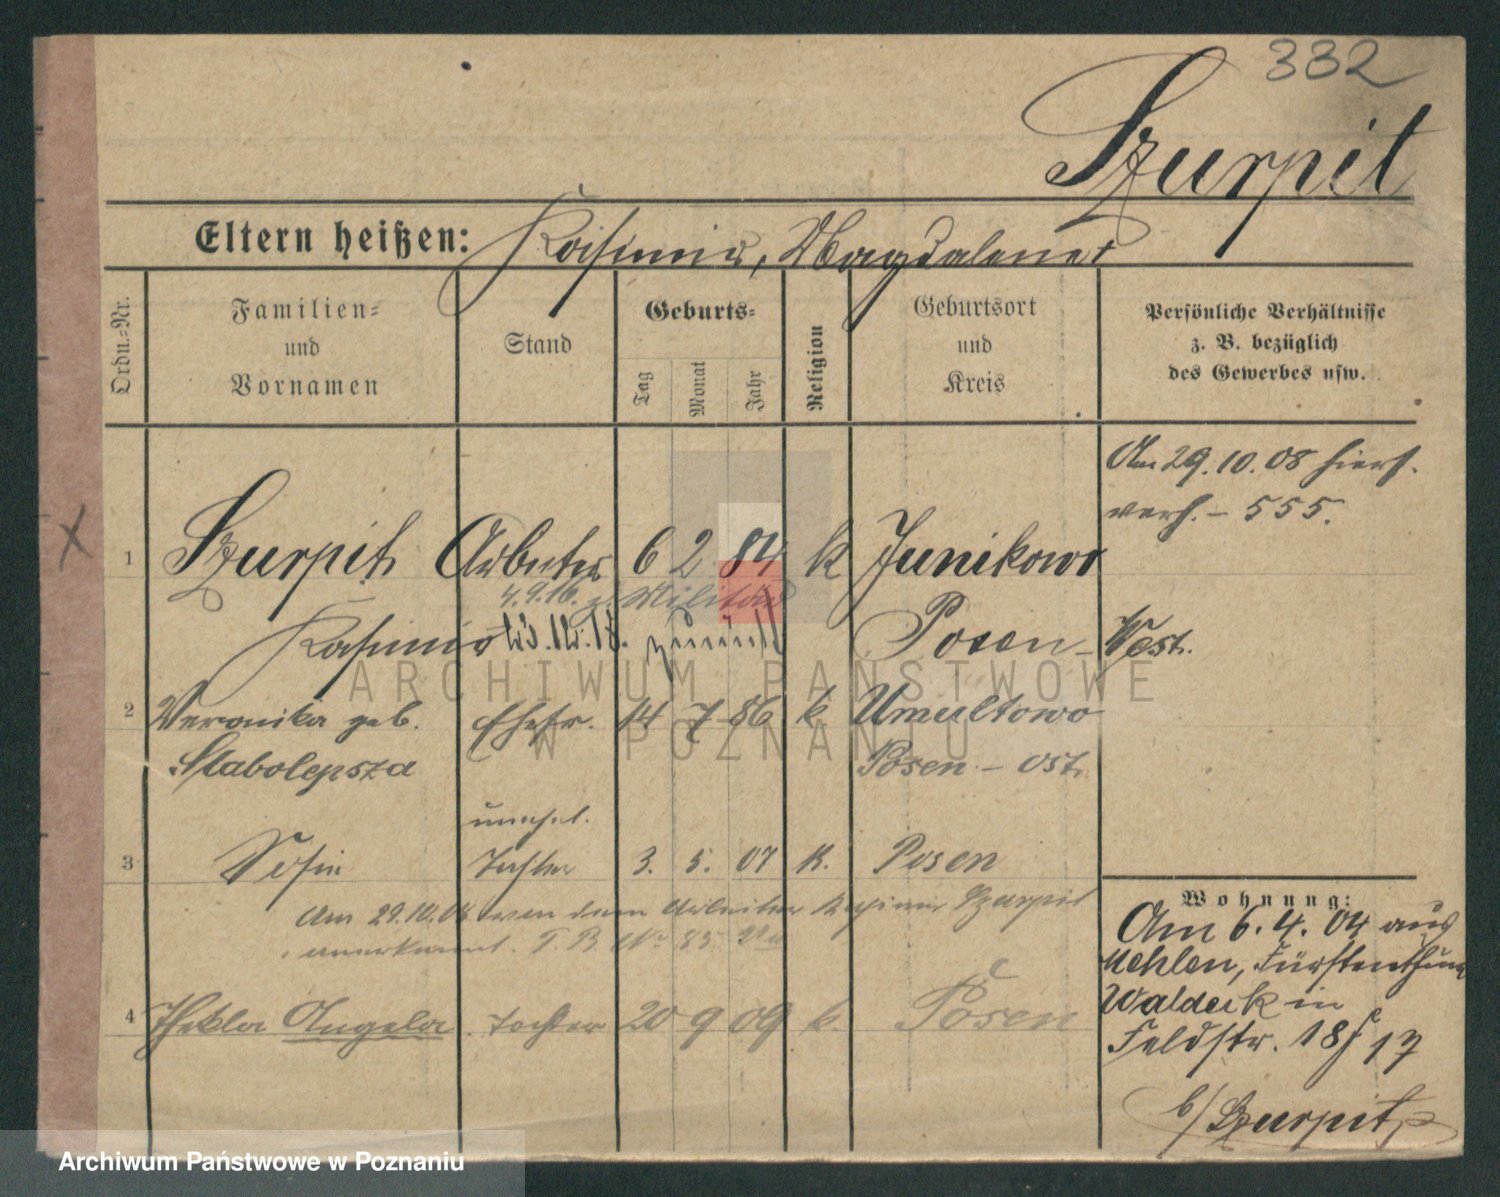 332
Szurpit
Eltern heißen: Kasimir, Magdalena
Ordn.-Nr.
Familien-
und
Vornamen
Stand
Geburts-
Tag
Monat
Jahr
Religion
Geburtsort
und
Kreis
Persönliche Verhältnisse
z. B. bezüglich
des Gewerbes usw.
Am 29.10.08 hiers.
verh. - 555.
X
1 Szurpit Arbeiter 6 2 84 k Junikowo
4.9.16. z. Militär
Kasimir 23.12.18. zurück Posen - West.
2 Veronika geb. Ehefr. 14 7 86 k. Umultowo
Stabolepsza Posen - Ost.
unehel.
3 Sofie Tochter 3. 5. 07 K. Posen
Am 29.10.08 von dem Arbeiter Kasimir Szurpit
anerkannt. T. B. No 85
4 Thekla Angela Tochter 20 9 09 k. Posen
Wohnung:
Am 6.4.04 aus
Mehlen, Fürstenthum
Waldeck in
Feldstr. 18 17
b/ Szurpit
ARCHIWUM PAŃSTWOWE
W POZNANIU
Archiwum Państwowe w Poznaniu